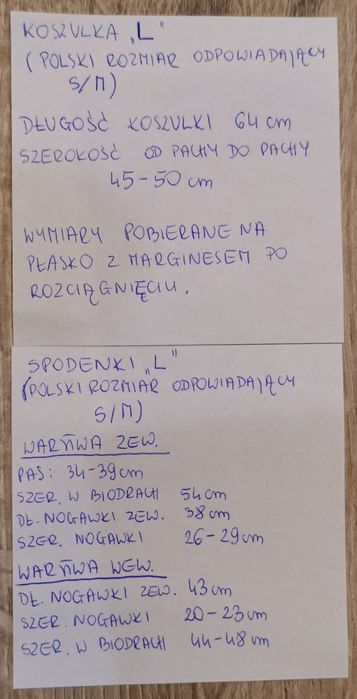 KOSZULKA „L"
(POLSKI ROZMIAR ODPOWIADAJĄCY
S/M)
DŁUGOŚĆ KOSZULKI 64 cm
SZEROKOŚĆ OD PACHY DO PACHY
45-50 cm
WYMIARY POBIERANE NA
PŁASKO Z MARGINESEM PO
ROZCIĄGNIĘCIU.
SPODENKI „L"
(POLSKI ROZMIAR ODPOWIADAJĄCY
S/M)
WARSTWA ZEW.
PAS: 34-39cm
SZER. W BIODRACH 54cm
DŁ. NOGAWKI ZEW. 38cm
SZER. NOGAWKI 26-29cm
WARSTWA WEW.
DŁ. NOGAWKI ZEW. 43cm
SZER. NOGAWKI 20-23cm
SZER. W BIODRACH 44-48cm